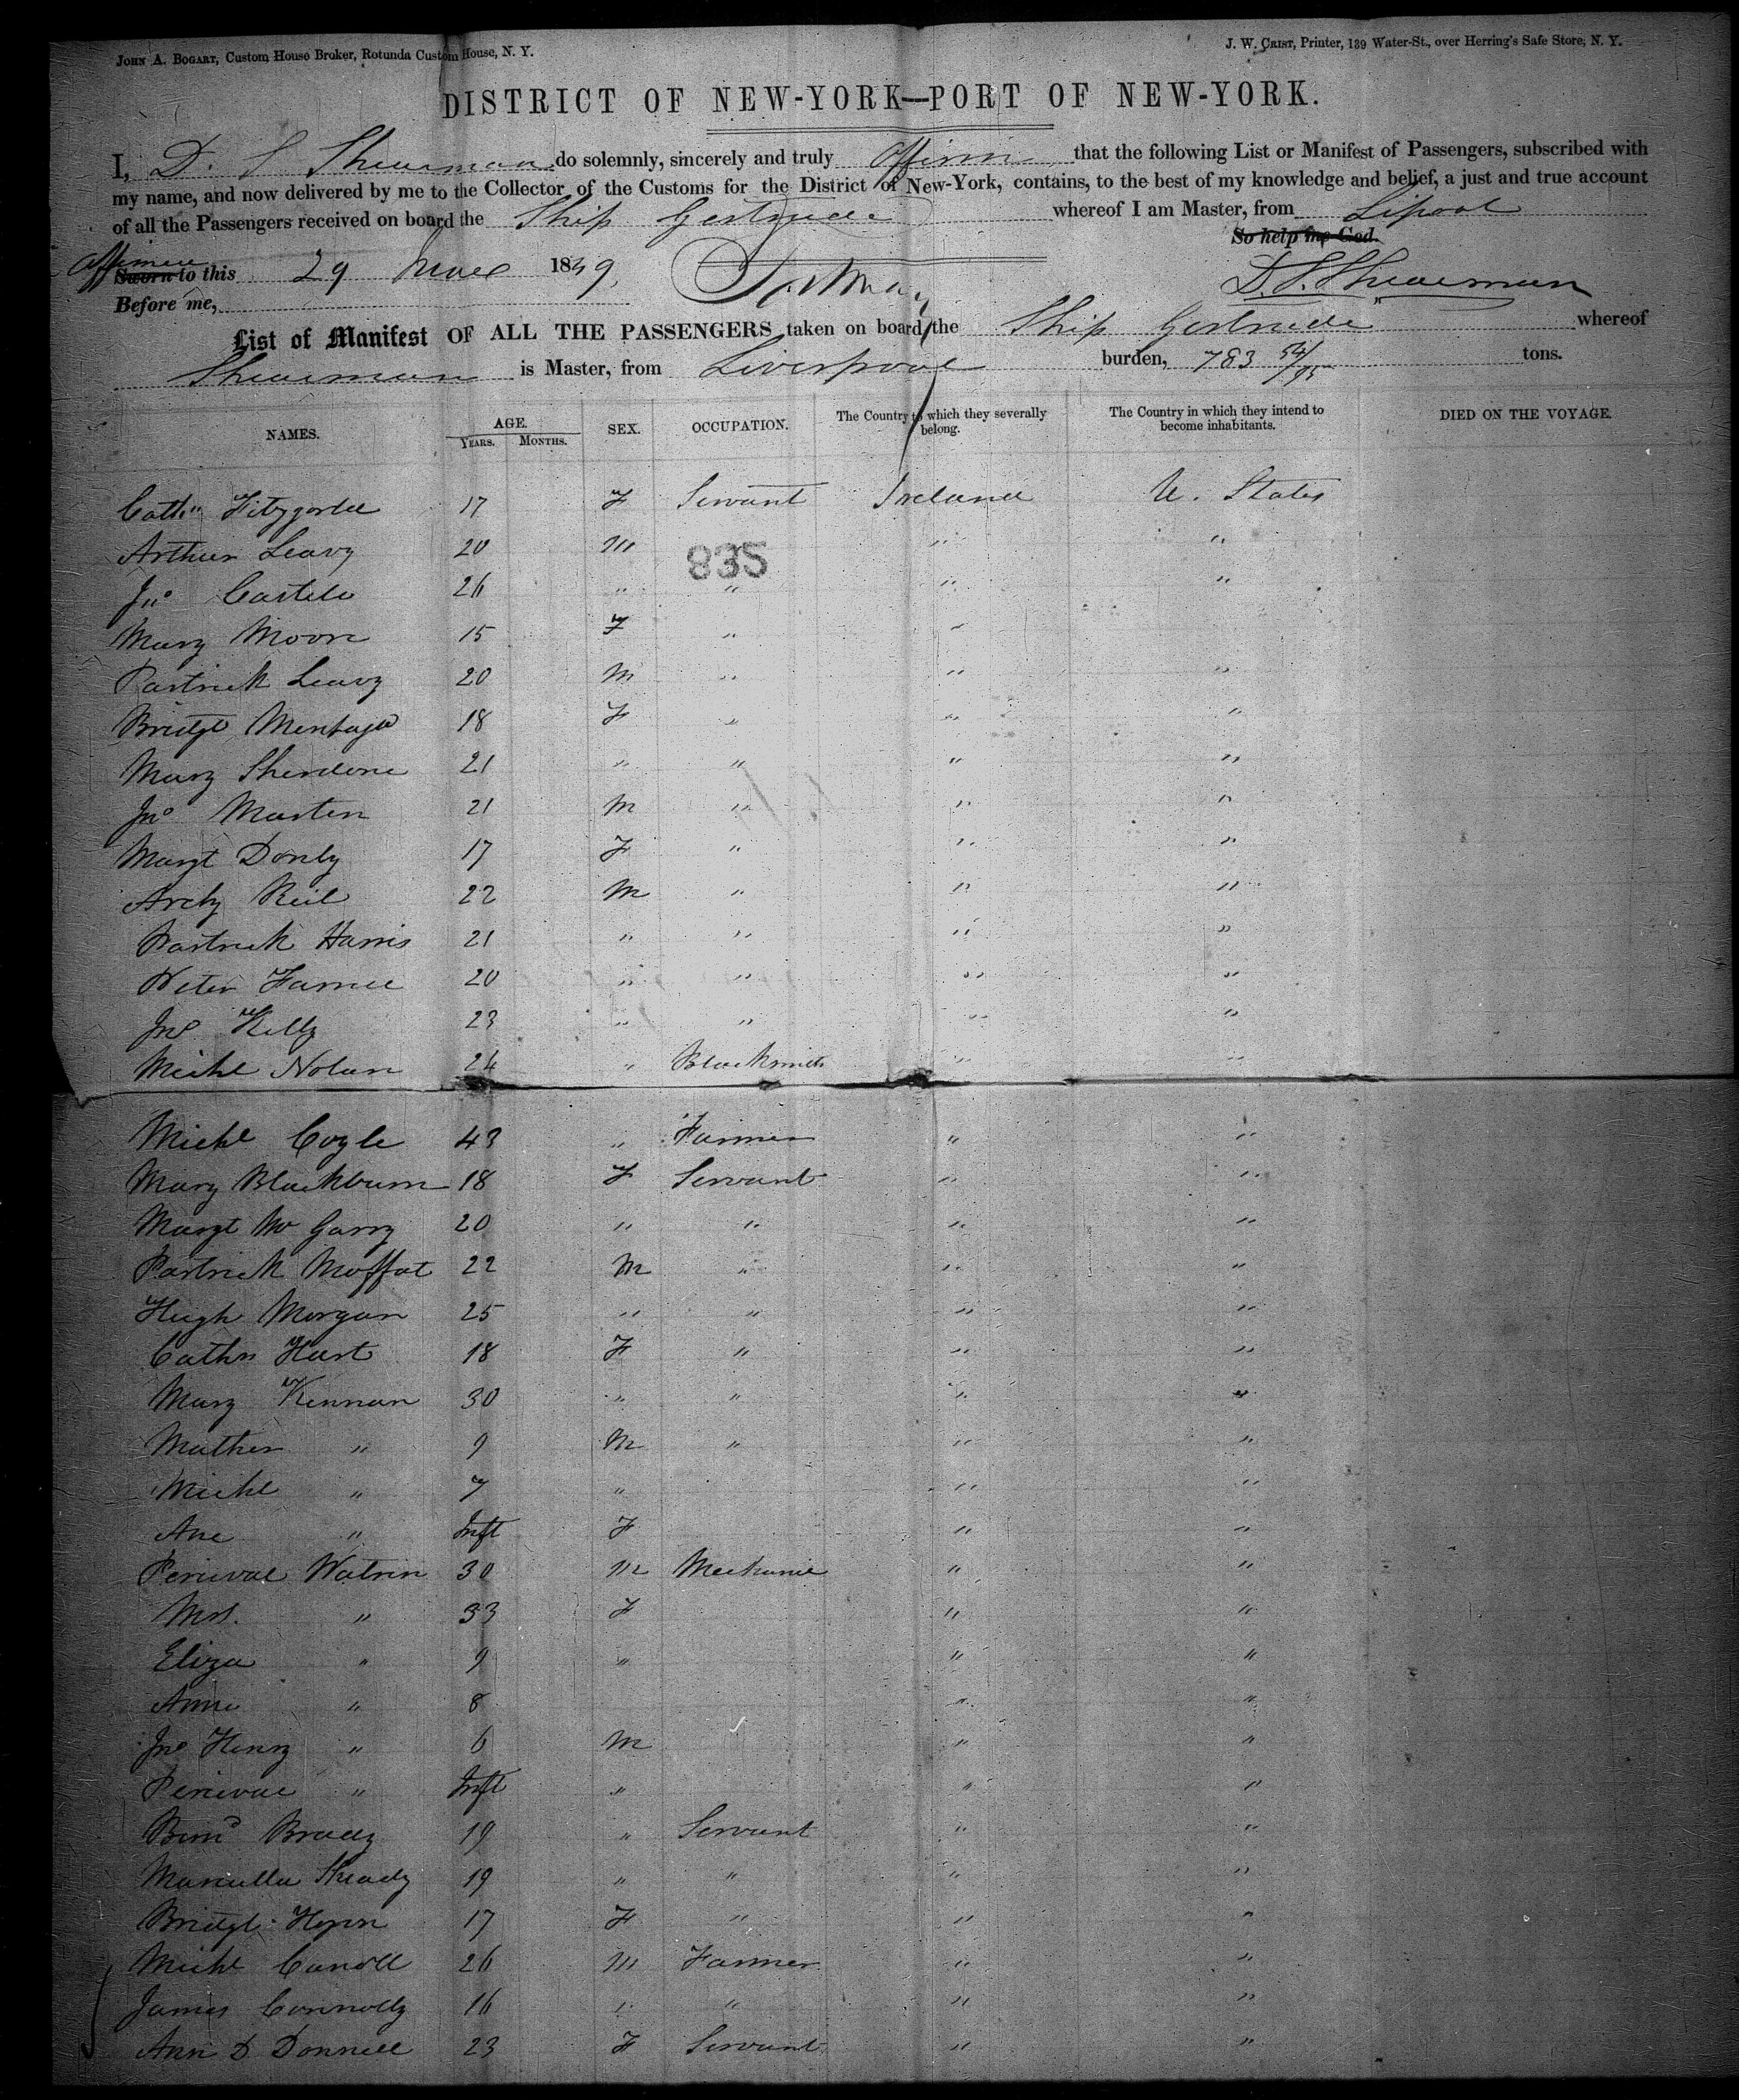 JOHN A. BOGART, Custom House Broker, Rotunda Custom House, N. Y.
J. W. CRIST, Printer, 139 Water-St., over Herring's Safe Store, N. Y.
DISTRICT OF NEW-YORK—PORT OF NEW-YORK.
I, D. S Shearman do solemnly, sincerely and truly affirm that the following List or Manifest of Passengers, subscribed with
my name, and now delivered by me to the Collector of the Customs for the District of New-York, contains, to the best of my knowledge and belief, a just and true account
of all the Passengers received on board the Ship Gertrude whereof I am Master, from Lipool
So help me God.
Sworn to this 29 1849
D. S. Shearman
Before me,
List of Manifest OF ALL THE PASSENGERS taken on board the Ship Gertrude whereof
Shearman is Master, from Liverpool burden, 783 54/95 tons.
NAMES. AGE. YEARS. MONTHS. SEX. OCCUPATION. The Country to which they severally belong. The Country in which they intend to become inhabitants. DIED ON THE VOYAGE.
Cathn 17 F Servant Ireland U. States
Arthur Leavy 20 M " "
835
Jno Castele 26 " " " "
Mary Moore 15 F " " "
Partrick Leavy 20 M " " "
Bridgt 18 F " " "
Mary Sherdone 21 " " " "
Jno Marten 21 M " " "
Margt Donly 17 F " " "
Archy Reil 22 M " " "
Partrick Harris 21 " " " "
Peter 20 " " " "
Jno Kelly 23 " " " "
Michl Nolan 24 " Blacksmith " "
Michl Coyle 43 " Farmer " "
Mary Blackburn 18 F Servant " "
Margt Mc Garry 20 " " " "
Partrick Moffat 22 M " " "
Hugh Morgan 25 " " " "
Cathn Hart 18 F " " "
Mary Kennan 30 " " " "
Mather " 9 M " " "
Michl " 7 " " "
Ane " Inft F " "
Percival Watrin 30 M Mechanic " "
Mrs. " 33 F " "
Eliza " 9 " " "
Anne " 8 " "
Jno Henry " 6 M " "
Percival " Inft " " "
Bernd Brady 19 " Servant " "
19 " " " "
Bridgt 17 F " " "
Michl Caroll 26 M Farmer " "
James Connolly 16 " " " "
Ann D Donnell 23 F Servant " "